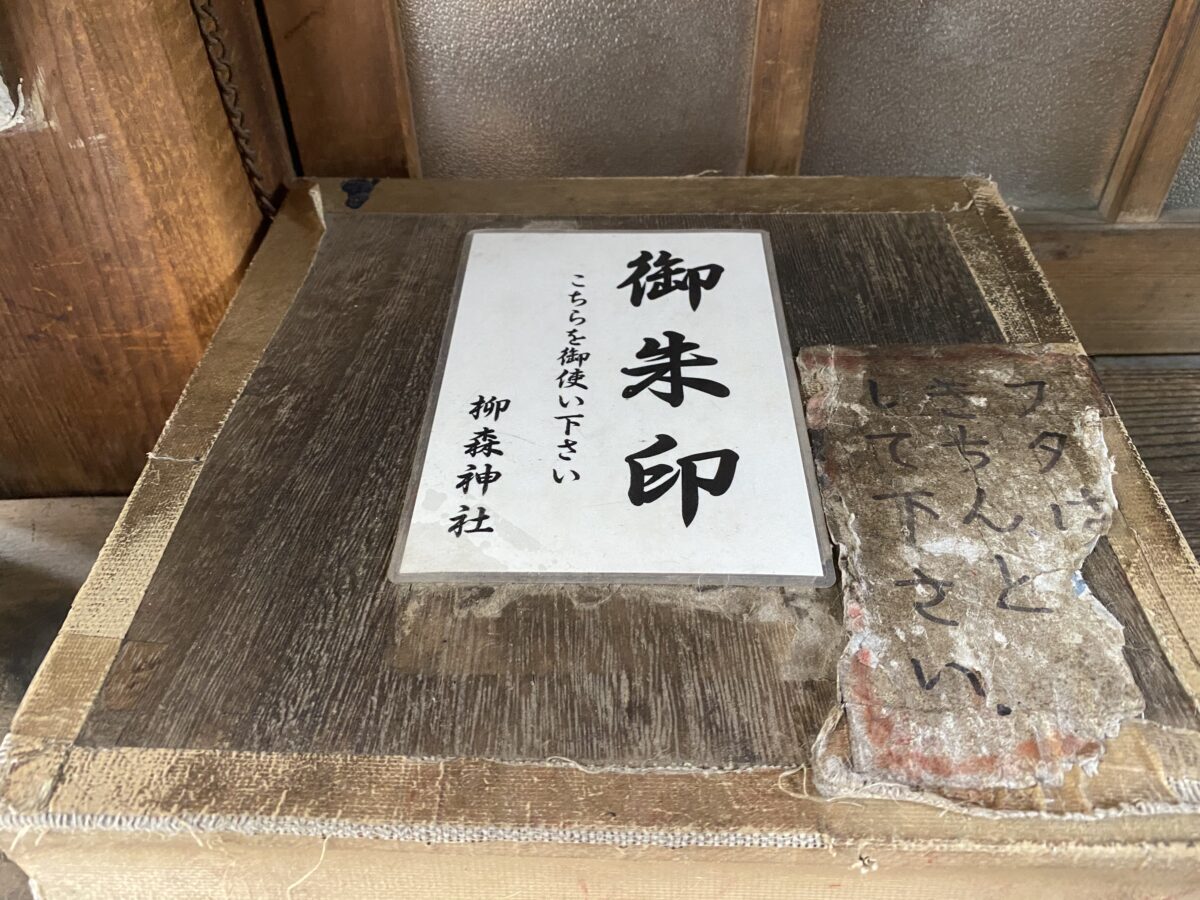 御朱印
こちらを御使い下さい
柳森神社
フタは
きちんと
して下さい.